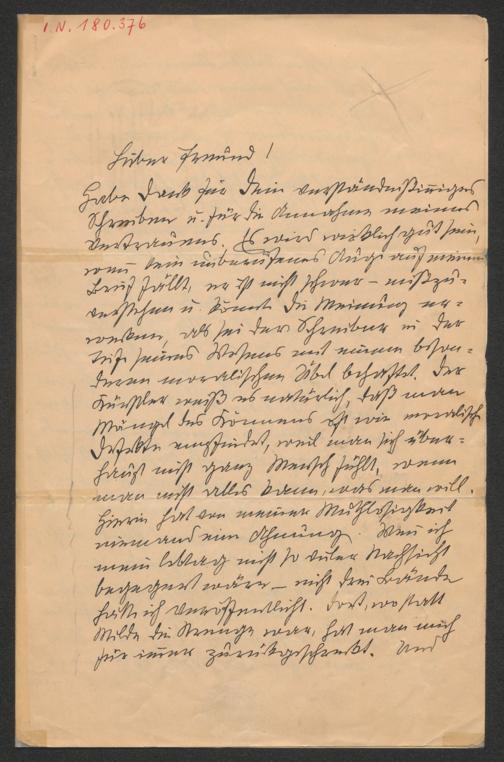 I.N. 180.376
Lieber Freund!
Habe Dank für Dein verständnißinniges
Schreiben u. für die Annahme meines
Vertrauens. Es wird wirklich gut sein,
wenn kein unberufenes Auge auf meinen
Brief fällt, er ist nicht schwer – mißzu-
verstehen u. könnte die Meinung er-
wecken, als sei der Schreiber in der
Tiefe seines Wesens mit einem beson-
deren moralischen Übel behaftet. Der
Künstler weiß es natürlich, daß man
Mängel des Könnens oft wie moralische
Defekte empfindet, weil man sich über-
haupt nicht ganz Mensch fühlt, wenn
man nicht alles kann, was man will.
Hierin hat von meiner Muthlosigkeit
niemand eine Ahnung. Wenn ich
mein Lebtag nicht so vieler Nachsicht
begegnet wäre – nicht drei Bände
hätte ich veröffentlicht. Dort, wo statt
Milde die Strenge war, hat man mich
für immer zurückgeschreckt. Und